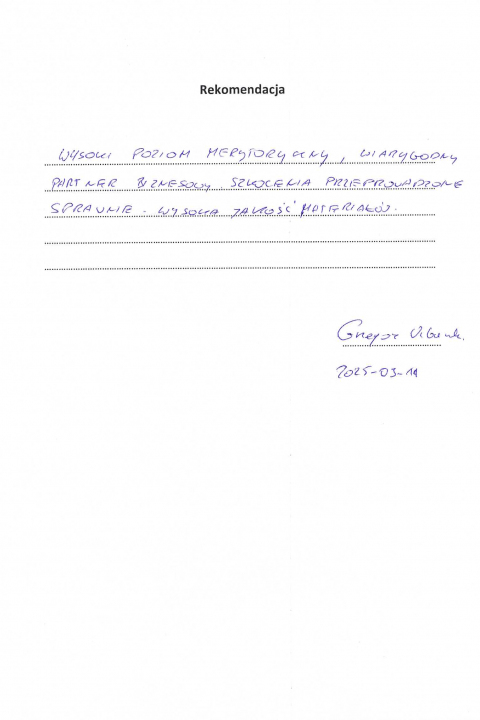 Rekomendacja
WYSOKI POZIOM MERYTORYCZNY, WIARYGODNY
PARTNER BIZNESOWY. SZKOLENIA PRZEPROWADZONE
SPRAWNIE. WYSOKA JAKOŚĆ MATERIAŁÓW.
Grzegorz
2025-03-11